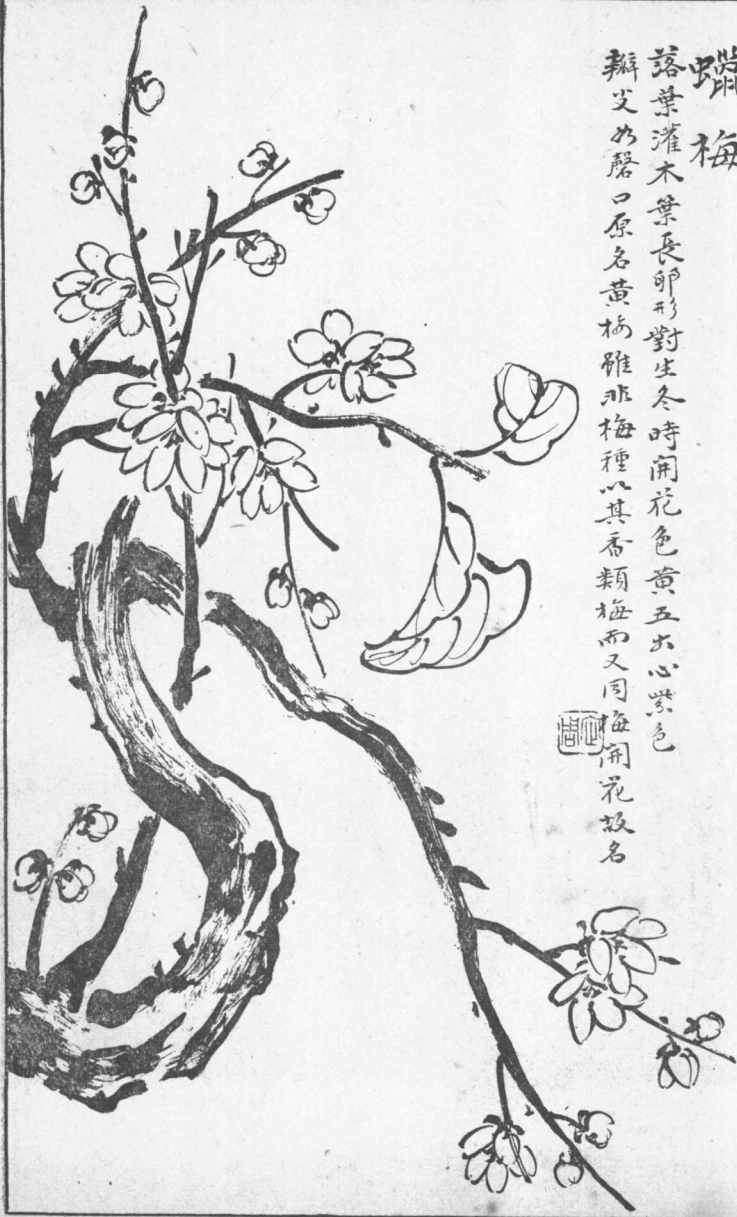 蠟梅
落葉灌木葉長卵形對生冬時開花色黃五出心紫色
瓣尖如磬口原名黃梅雖非梅種以其香類梅而又同梅開花故名